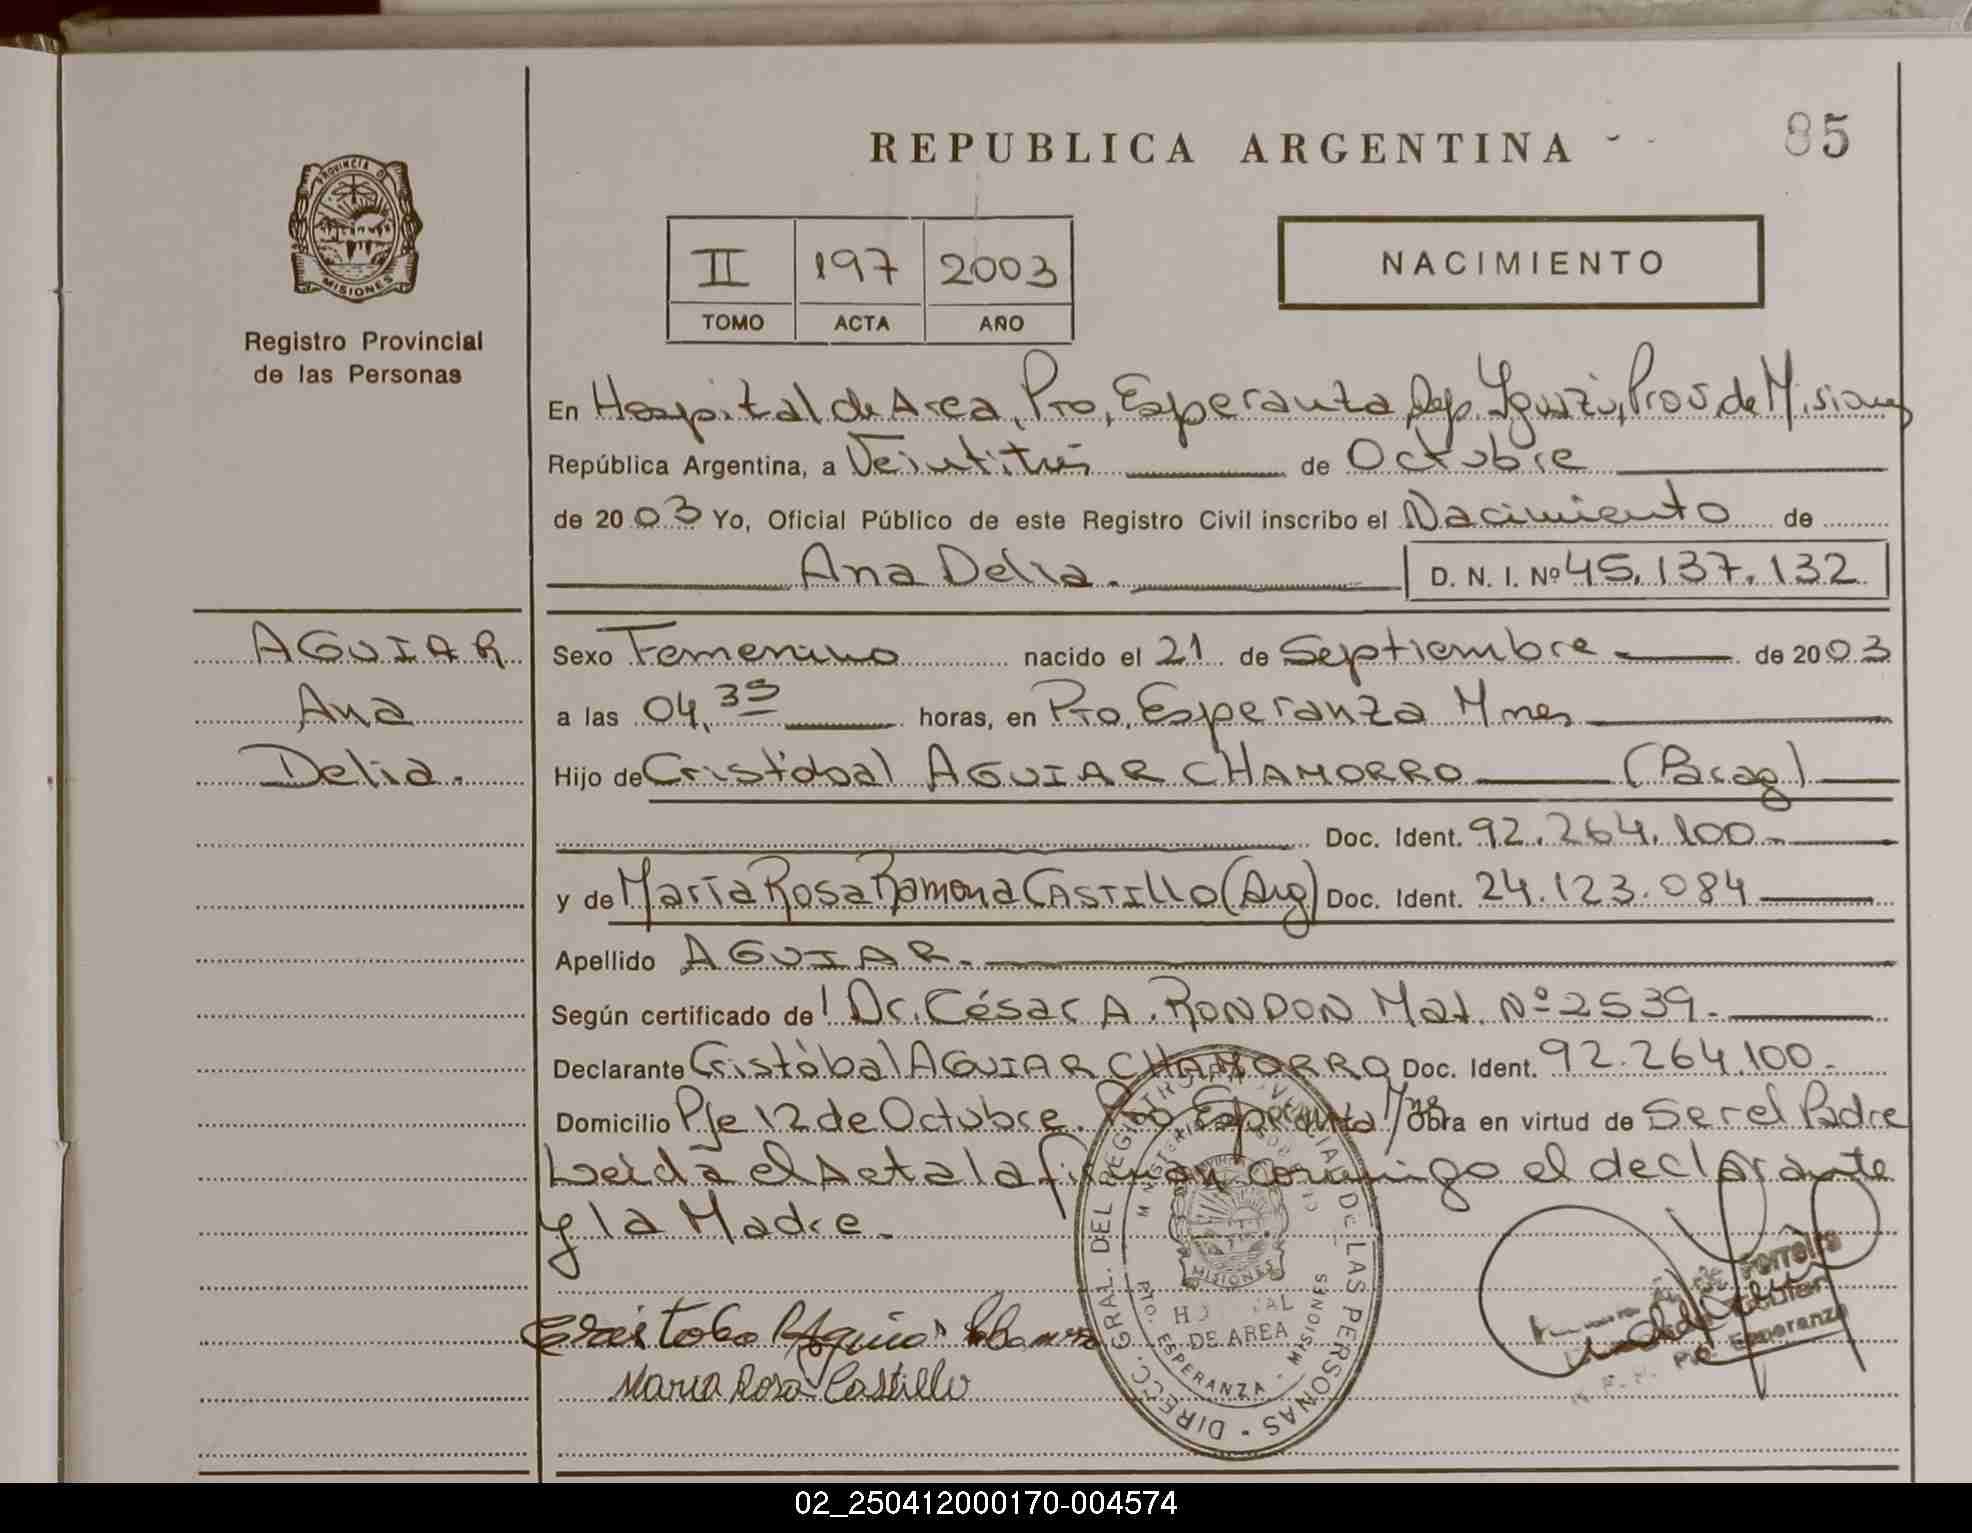 REPUBLICA ARGENTINA
85
PROVINCIA DE MISIONES
Registro Provincial
de las Personas
II 197 2003
TOMO ACTA AÑO
NACIMIENTO
En Hospital de Area, Pto, Esperanza, Dep. Iguazú, Prov. de Misiones
República Argentina, a Veintitrés de Octubre
de 20 03 Yo, Oficial Público de este Registro Civil inscribo el Nacimiento de
Ana Delia. D. N. I. Nº 45.137.132
AGUIAR
Ana
Delia.
Sexo Femenino nacido el 21 de Septiembre de 20 03
a las 04,35 horas, en Pto, Esperanza Mnes
Hijo de Cristóbal AGUIAR CHAMORRO (Parag)
Doc. Ident. 92.264.100.-
y de María Rosa Ramona CASTILLO (Arg) Doc. Ident. 24.123.084
Apellido AGUIAR.
Según certificado de Dr. César A. RONDON Mat. Nº 2539.
Declarante Cristóbal AGUIAR CHAMORRO Doc. Ident. 92.264.100.-
Domicilio Pje 12 de Octubre. Pto Esperanza Mnes Obra en virtud de Ser el Padre
Leída el Acta la firman conmigo el declarante
y la Madre.
DIRECC. GRAL. DEL REGISTRO PROVINCIAL DE LAS PERSONAS
MISIONES
DE AREA
PTO. ESPERANZA - MISIONES
Maria Rosa Castillo
Ferreira
Titular
Pto. Esperanza
02_250412000170-004574